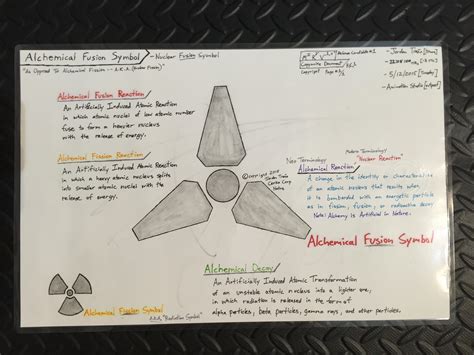 Alchemical Fusion Symbol - Nuclear Fusion Symbol
"As Opposed To Alchemical Fission -- A.K.A. (Nuclear Fission)"
Copyright Page #
- Jordan
- 5/12/2015 [Tuesday]
- Animation Studio
Alchemical Fusion Reaction
An Artificially Induced Atomic Reaction
in which atomic nuclei of low atomic number
fuse to form a heavier nucleus
with the release of energy.
Alchemical Fission Reaction
An Artificially Induced Atomic Reaction
in which a heavy atomic nucleus splits
into smaller atomic nuclei with the
release of energy.
©Copyright 2015
Jordan
Neo Terminology
Alchemical Reaction
Modern Terminology
"Nuclear Reaction"
A change in the identity or characteristics
of an atomic nucleus that results when
it is bombarded with an energetic particle
as in fission, fusion, or radioactive decay
Note: Alchemy is Artificial in Nature.
Alchemical Fusion Symbol
Alchemical Decay
An Artificially Induced Atomic Transformation
of an unstable atomic nucleus into a lighter one,
in which radiation is released in the form of
alpha particles, beta particles, gamma rays, and other particles.
Alchemical Fission Symbol
A.K.A. "Radiation Symbol"